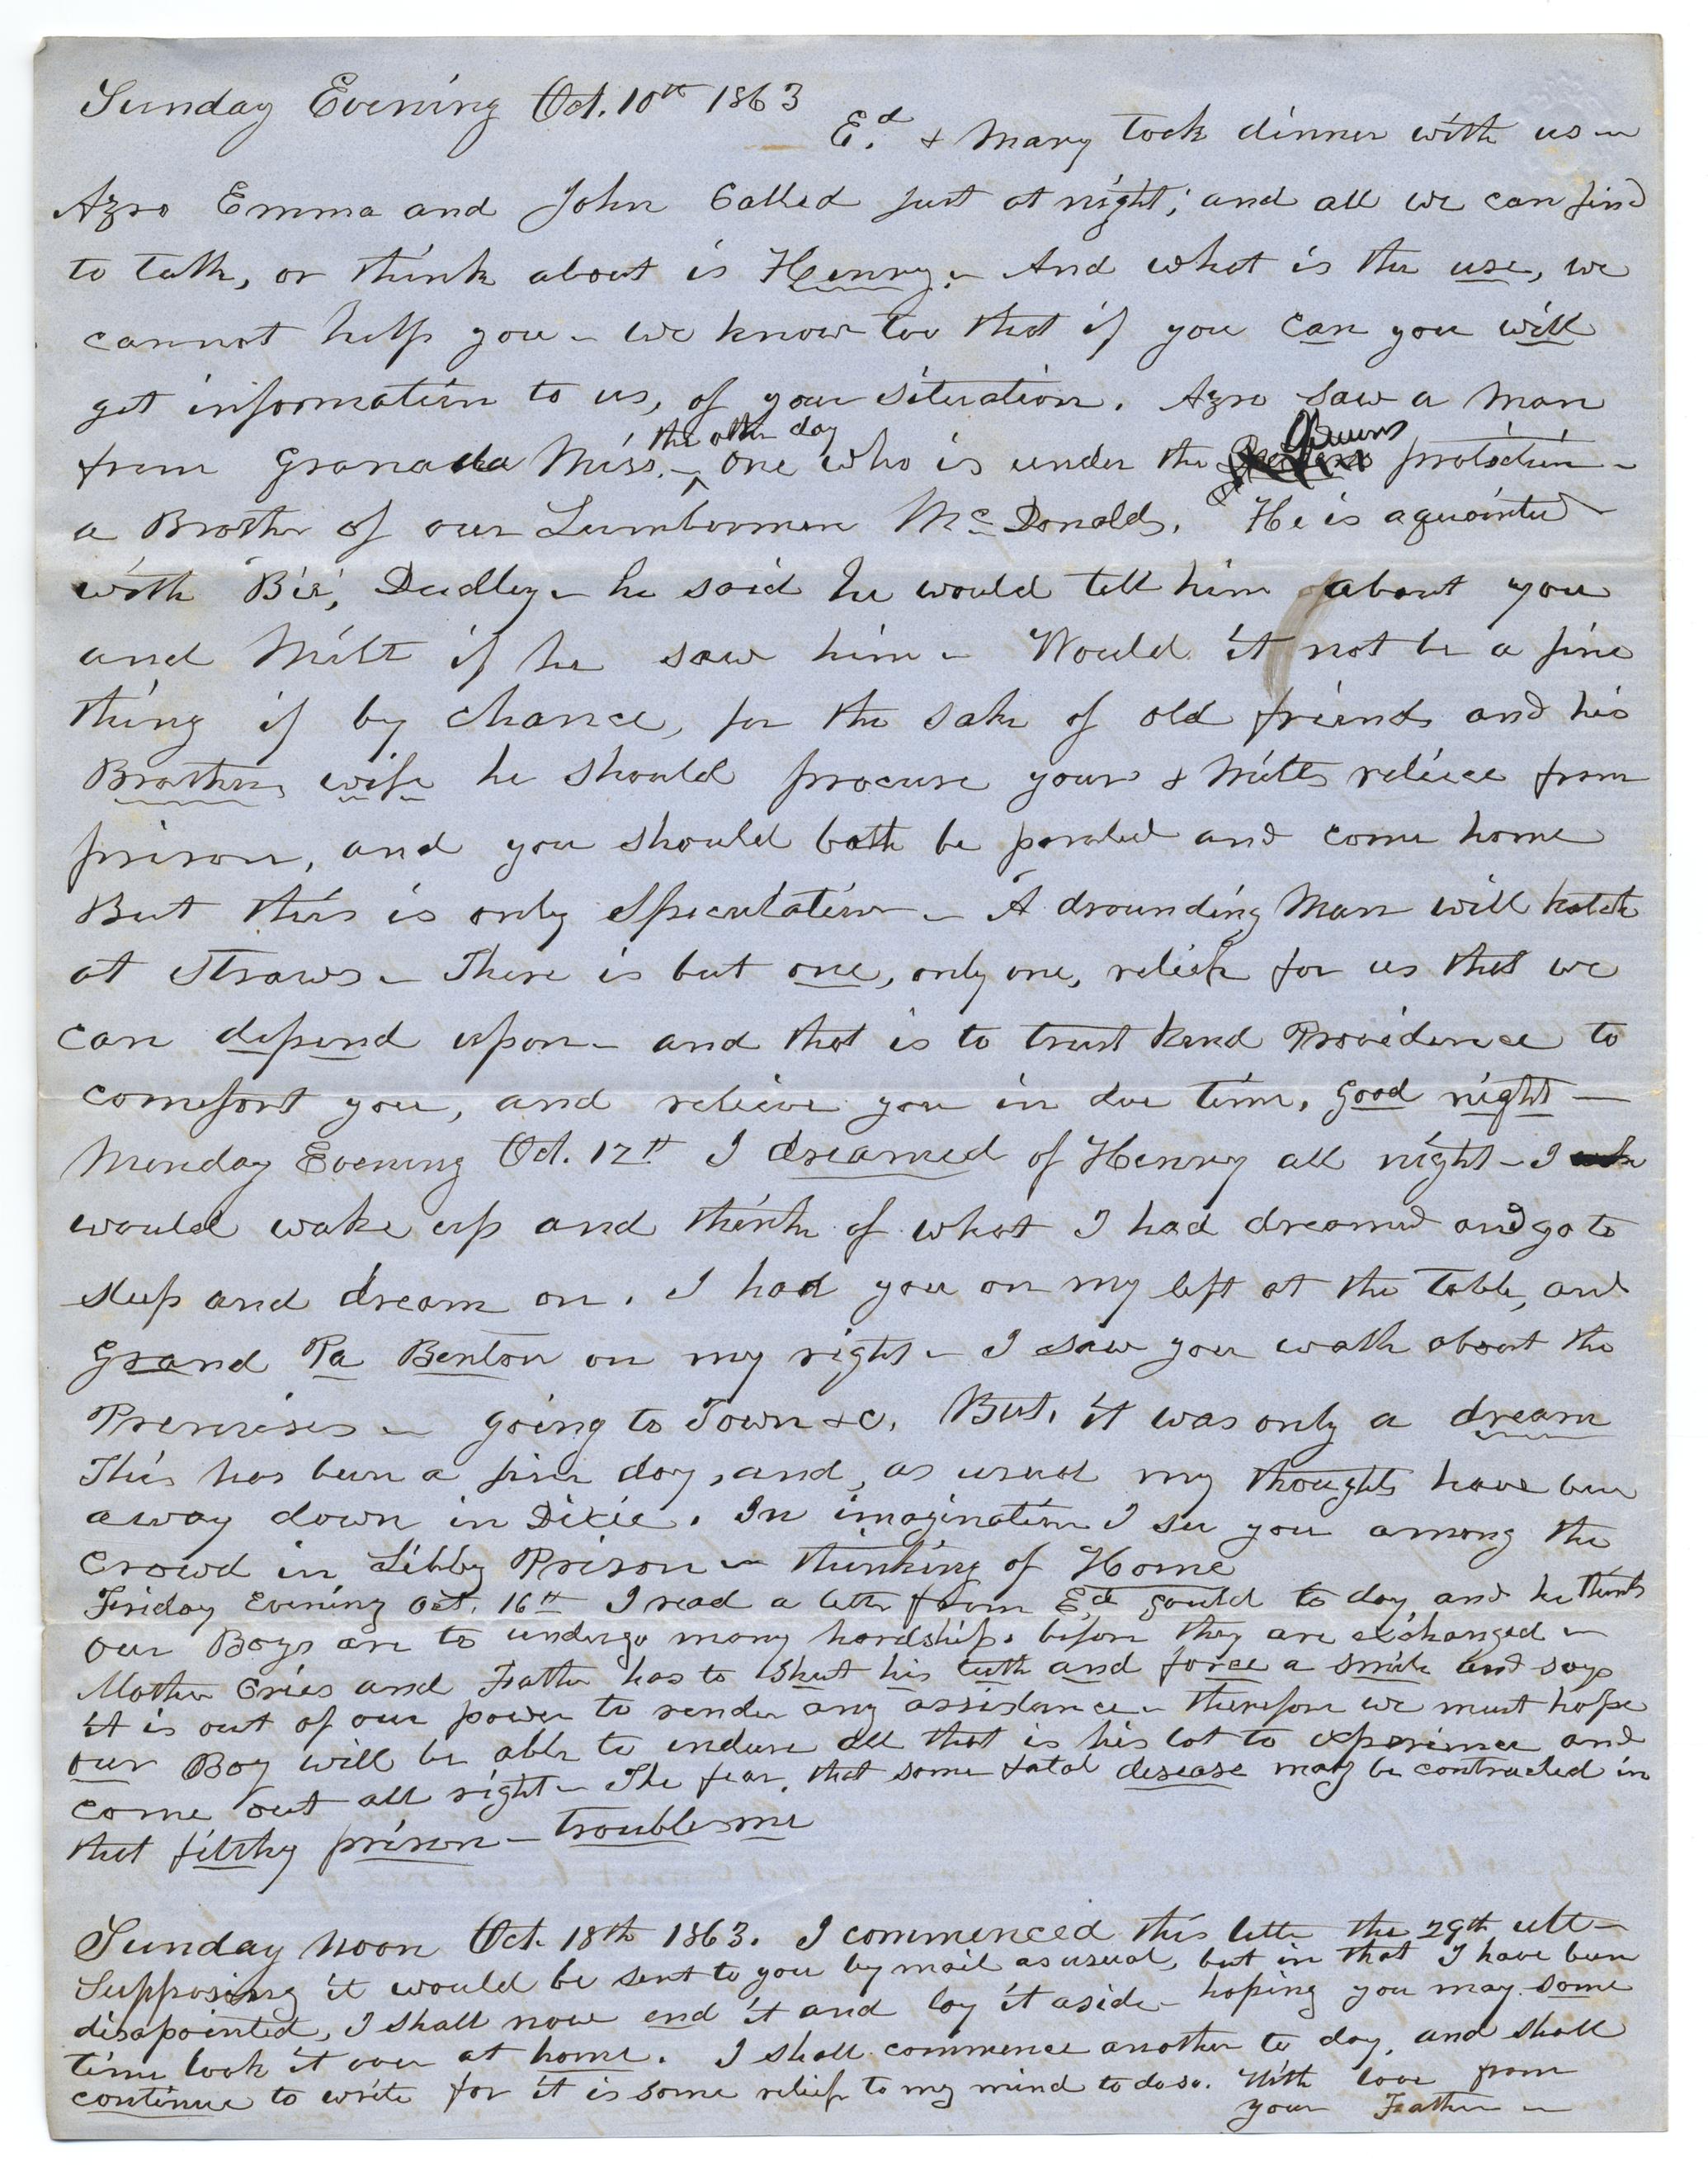 Sunday Evening Oct. 10th 1863
Ed. & Mary took dinner with us -
Azro Emma and John Called just at night; and all we can find
to talk, or think about is Henry. - And what is the use, we
cannot help you - we know too that if you can you will
get information to us, of your situation. Azro saw a Man
the other day
from Granada Miss. - one who is under the protection -
a Brother of our Lumberman McDonald. He is aquainted
with Dudley - he said he would tell him about you
and Milt if he saw him - Would it not be a fine
thing if by chance, for the sake of old friends and his
Brothers wife he should procure your & Milts reliece from
prison, and you should both be paroled and come home
But this is only Speculation - A drounding Man will katch
at Straws - There is but one, only one, relief for us that we
can depend upon - and that is to trust kind Providence to
comefort you, and relieve you in due time. Good night -
Monday Evening Oct. 12th I dreamed of Henry all night - I
would wake up and think of what I had dreamed and go to
sleep and dream on. I had you on my left at the Table, and
Grand Pa Benton on my right - I saw you walk about the
Premises - going to Town &c. But, it was only a dream
This has been a fine day, and, as usual my thoughts have been
away down in Dixie. In imagination I see you among the
Crowd in Libby Prison - thinking of Home
Friday Evening Oct. 16th I read a letter from Ed Gould to day and he thinks
our Boys are to undergo many hardships before they are exchanged -
Mother Cries and Father has to shut his teeth and force a smile and says
it is out of our power to render any assistance - therefore we must hope
our Boy will be able to endure all that is his lot to experience and
come out all right - The fear, that some fatal desease may be contracted in
that filthy prison - troubles me
Sunday Noon Oct. 18th 1863. I commenced this letter the 29th ult -
Supposing it would be sent to you by mail as usual, but in that I have been
disapointed, I shall now end it and lay it aside - hoping you may some
time look it over at home. I shall commence another to day, and shall
continue to write for it is some relief to my mind to do so. With love from
your Father -